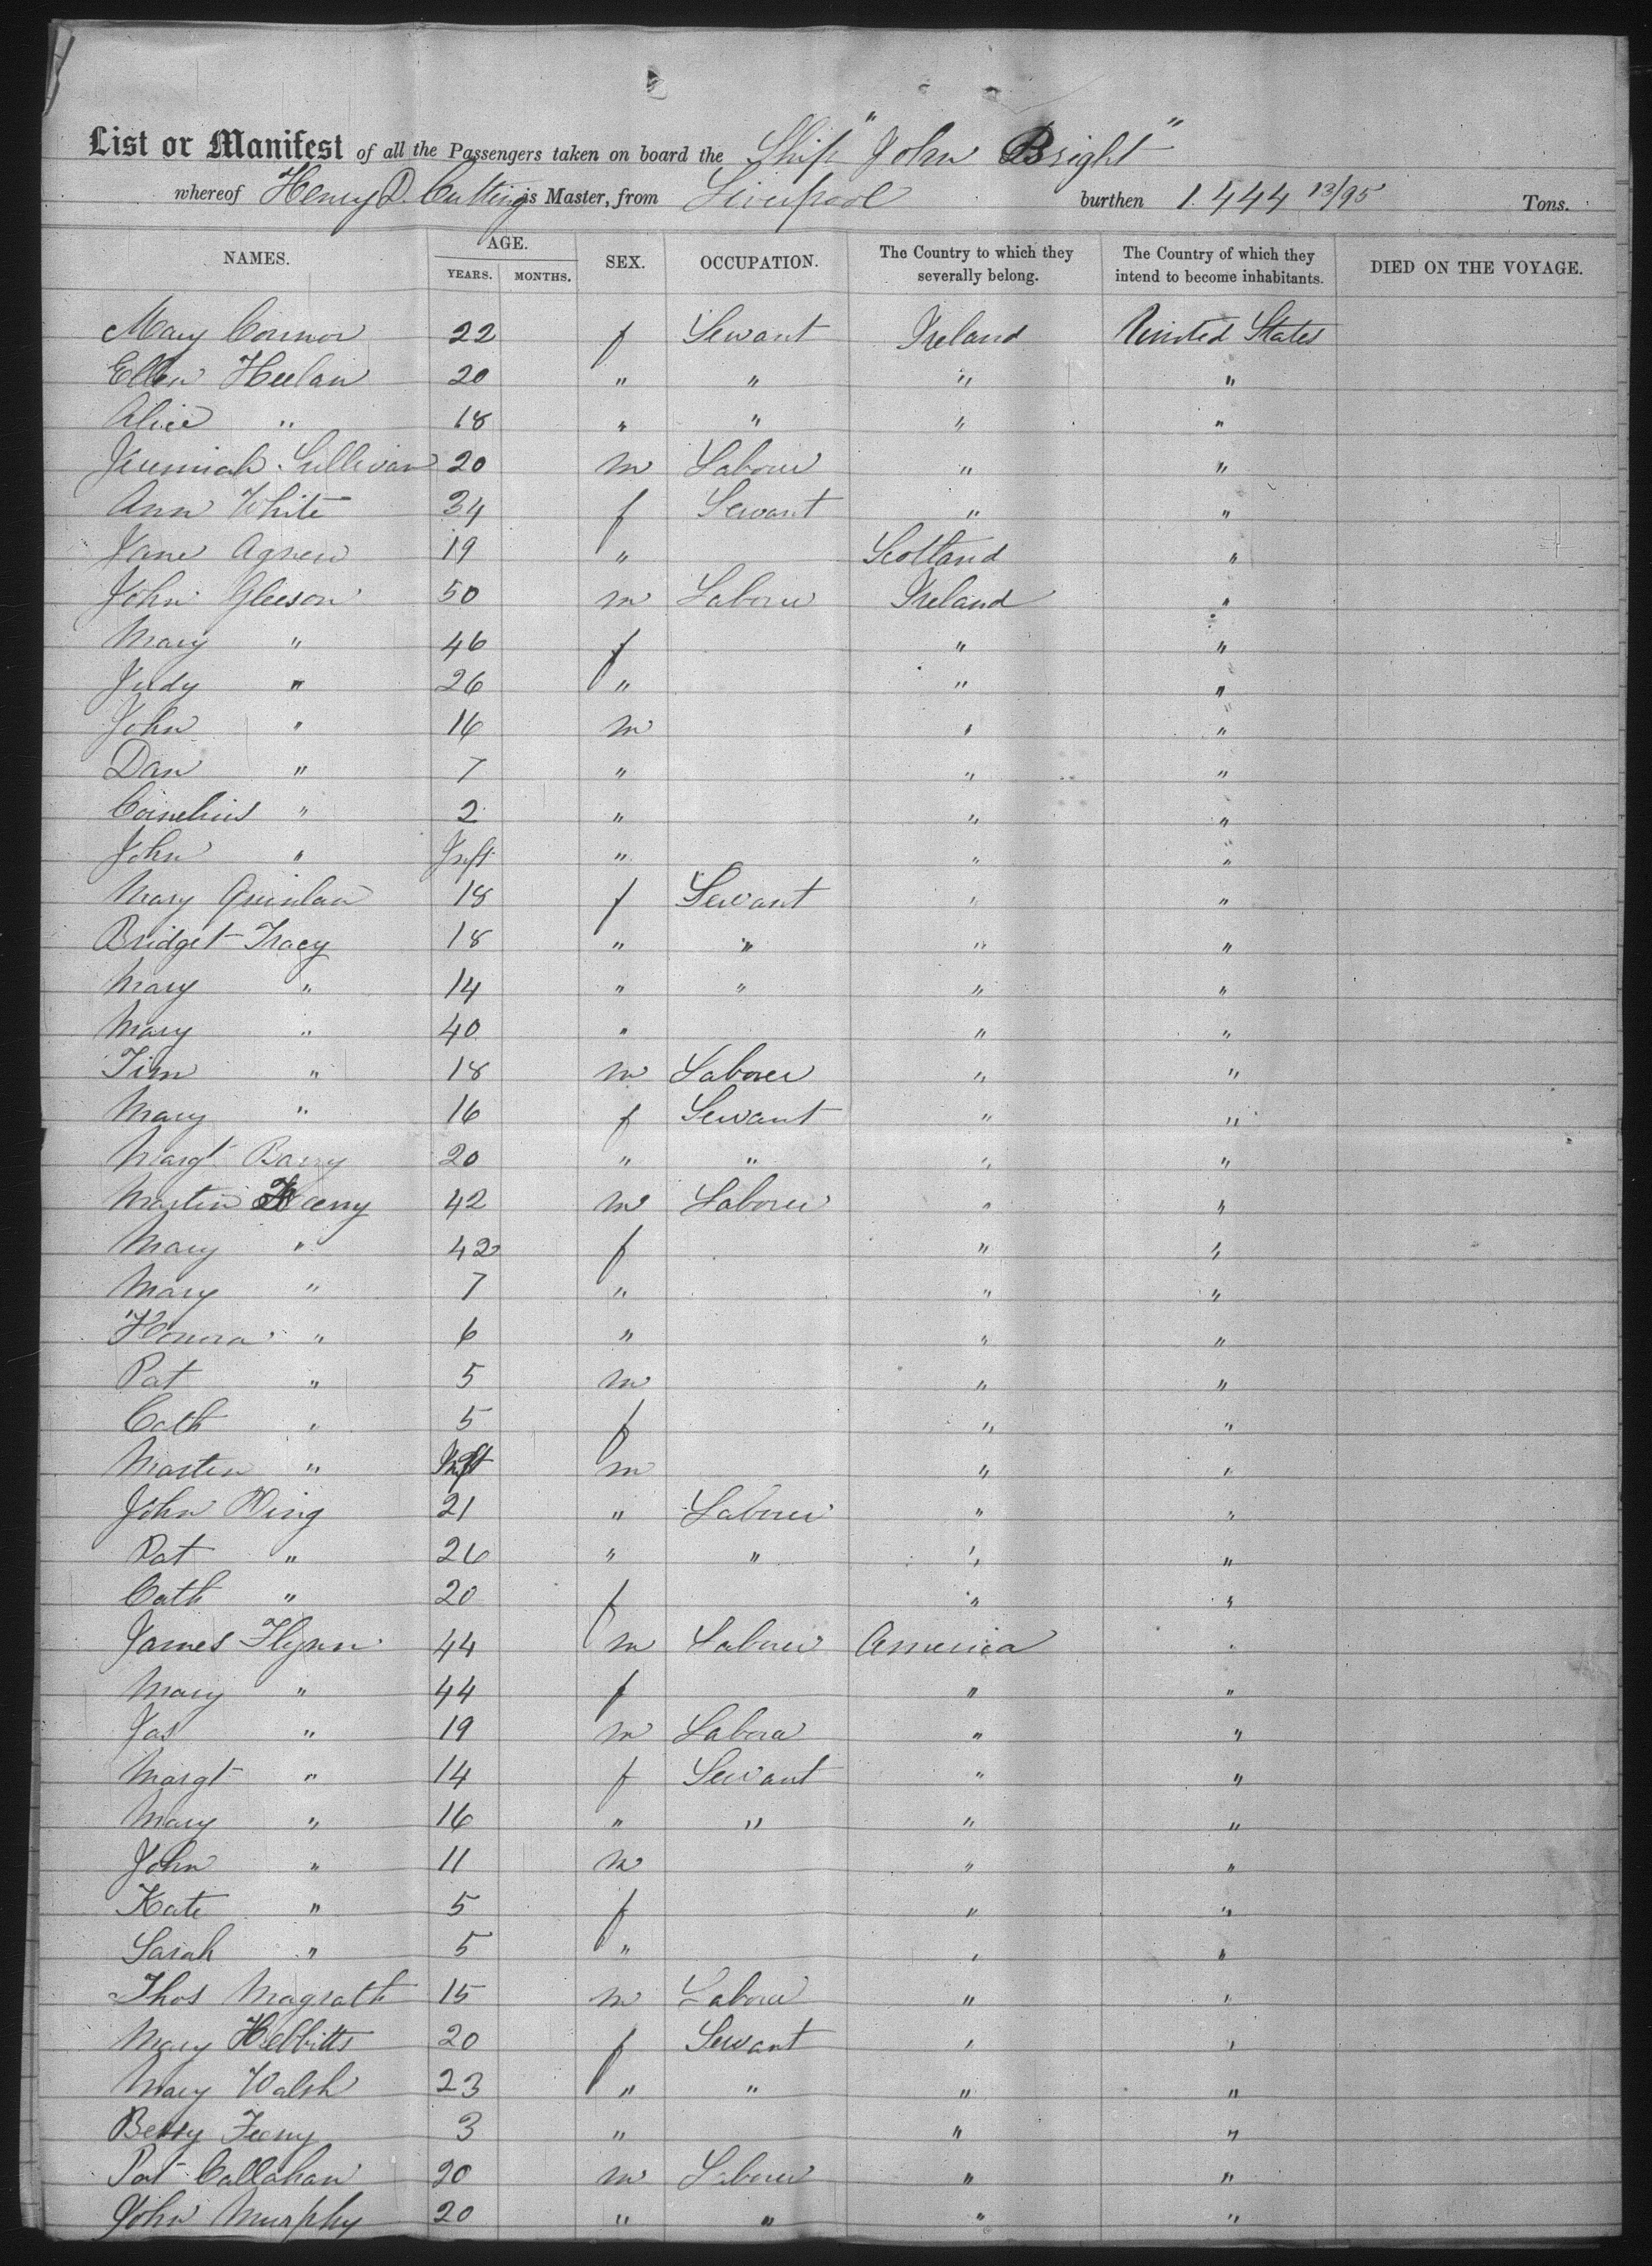 List or Manifest of all the Passengers taken on board the Ship "John Bright"
whereof Henry D. Cutting is Master, from Liverpool burthen 1.444 13/95 Tons.
NAMES. AGE. YEARS. MONTHS. SEX. OCCUPATION. The Country to which they severally belong. The Country of which they intend to become inhabitants. DIED ON THE VOYAGE.
Mary Connor 22 f Servant Ireland United States
Ellen Heelan 20 " " " "
Alice " 18 " " " "
Jeremiah Sullivan 20 m Laborer " "
Ann White 34 f Servant " "
Jane Agnew 19 " Scotland "
John Gleeson 50 m Laborer Ireland "
Mary " 46 f " "
Judy " 26 " " "
John " 16 m " "
Dan " 7 " " "
Cornelius " 2 " " "
John " Inft " " "
Mary Quinlan 18 f Servant " "
Bridget Tracy 18 " " " "
Mary " 14 " " " "
Mary " 40 " " "
Tim " 18 m Laborer " "
Mary " 16 f Servant " "
Margt Barry 20 " " " "
Martin 42 m Laborer " "
Mary " 42 f " "
Mary " 7 " " "
Honora " 6 " " "
Pat " 5 m " "
Cath " 5 f " "
Martin " Inft m " "
John King 21 " Laborer " "
Pat " 26 " " " "
Cath " 20 f " "
James Flynn 44 m Laborer America "
Mary " 44 f " "
Jas " 19 m Labora " "
Margt " 14 f Servant " "
Mary " 16 " " " "
John " 11 m " "
Kate " 5 f " "
Sarah " 5 " " "
Thos Magrath 15 m Laborer " "
Mary Hebbitts 20 f Servant " "
Mary Walsh 23 " " " "
Betsy Feeny 3 " " "
Pat Callahan 20 m Laborer " "
John Murphy 20 " " " "